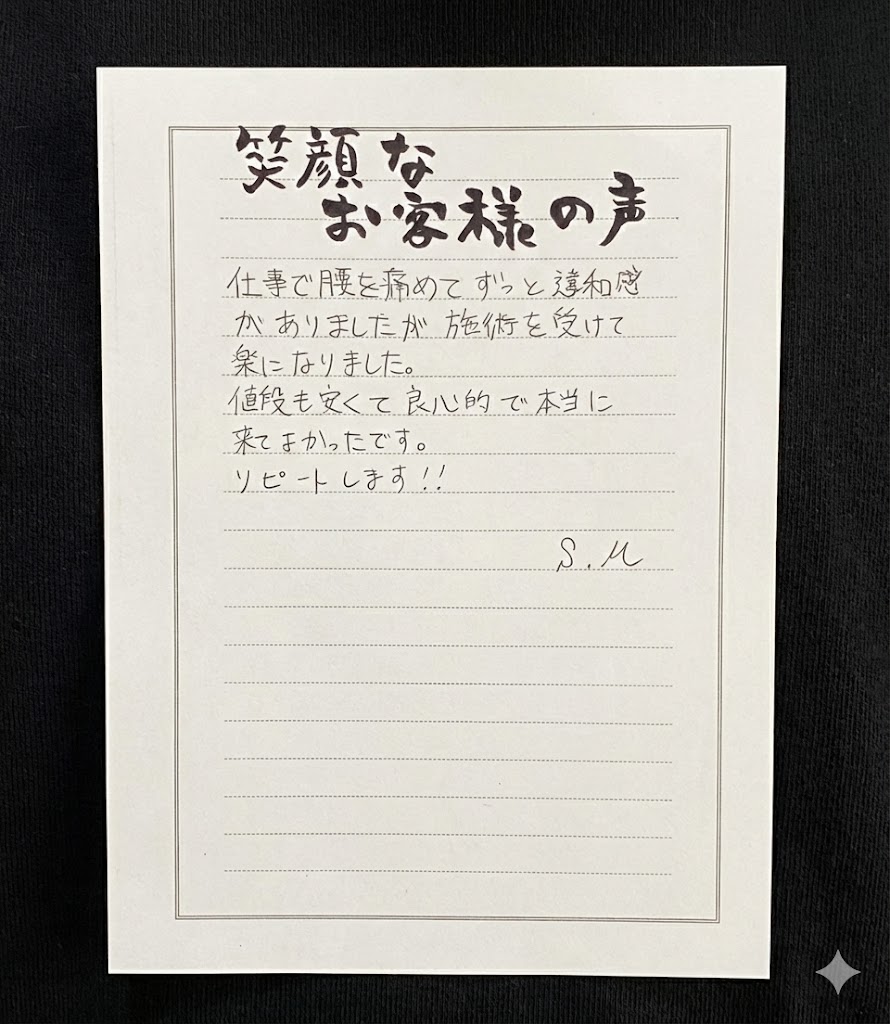 笑顔な
お客様の声
仕事で腰を痛めてずっと違和感
がありましたが施術を受けて
楽になりました。
値段も安くて良心的で本当に
来てよかったです。
リピートします!!
S.M